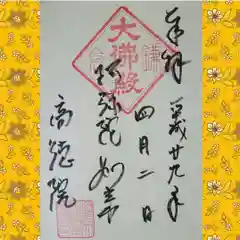 奉拝
平成廿九年
四月二日
大佛殿
阿弥陀如来
高徳院